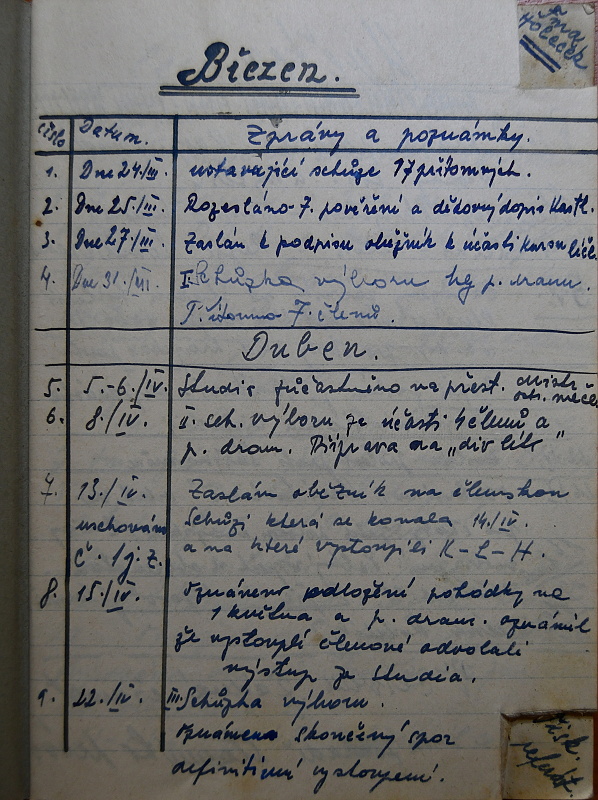 Březen.
číslo Datum. Zprávy a poznámky.
1. Dne 24/III. ustavající schůze 17 přítomných.
2. Dne 25/III. Rozesláno 7. pověření a děkovný dopis
3. Dne 27/III. Zaslán k podpisu oběžník k účasti
4. Dne 31./III. I. Schůzka výboru
Přítomno 7. členů.
Duben.
5. 5.-6./IV. Studio zúčastněno na přest.
6. 8./IV. II. sch. výboru za účasti 4 členů a
p. dram. Příprava na „div
7. 13./IV. Zaslán oběžník na člensko
uschováno Schůzi která se konala 14./IV.
č. 1 j. z. a na které vystoupili K-L-H.
8. 15./IV. oznámeno odložení pohádky na
1 května a p. dram. oznámil
že vystouplí členové odvolali
výstup ze studia.
9. 22./IV. III Schůzka výboru.
oznámeno skončený spor
definitivní vystoupení.